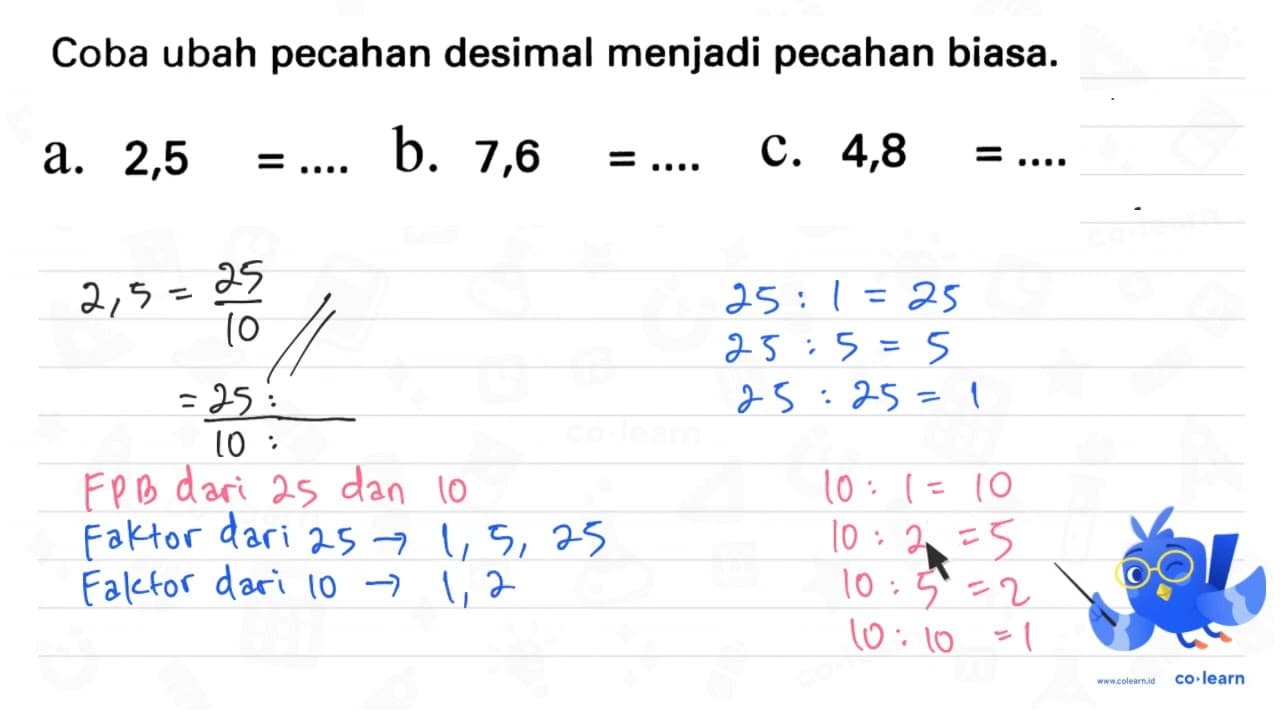 Coba ubah pecahan desimal menjadi pecahan biasa.
a. 2,5 = .... b. 7,6 = .... c. 4,8 = ....
2,5 = 25/10
= 25 : / 10 :
25 : 1 = 25
25 : 5 = 5
25 : 25 = 1
FPB dari 25 dan 10
Faktor dari 25 → 1, 5, 25
Faktor dari 10 → 1, 2
10 : 1 = 10
10 : 2 = 5
10 : 5 = 2
10 : 10 = 1
www.colearn.id co·learn
co-learn